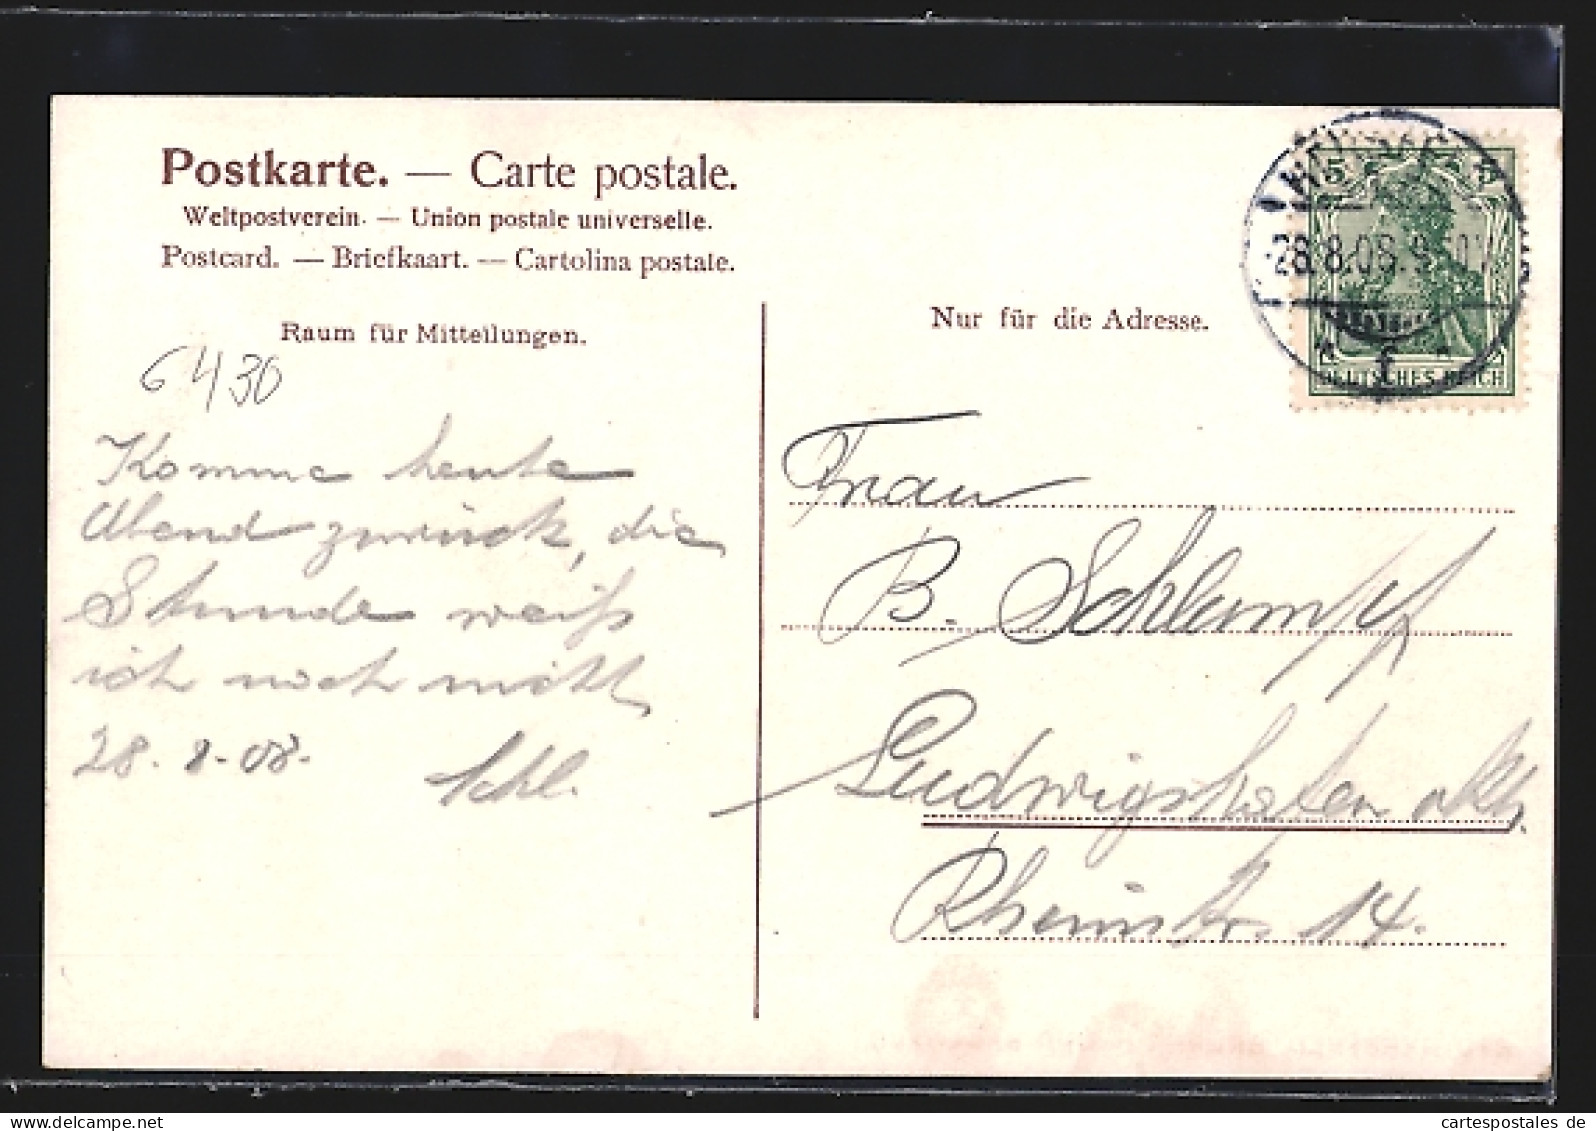 Postkarte. — Carte postale.
Weltpostverein. — Union postale universelle.
Postcard. — Briefkaart. — Cartolina postale.
Raum für Mitteilungen.
Nur für die Adresse.
5
28.8.08.9
* f *
DEUTSCHES REICH
6430
Komme heute
Abend zurück, die
Stunde weiß
ich noch nicht
28.8.08.
Schl.
Frau
B. Schlumpf
Ludwigshafen a/Rh.
Rheinstr. 14.
cartespostales de